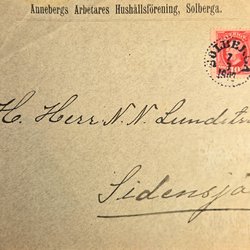 Annebergs Arbetares Hushållsförening, Solberga.
SOLBERGA
H. Herr N. N. Lundstr
Sidensjö